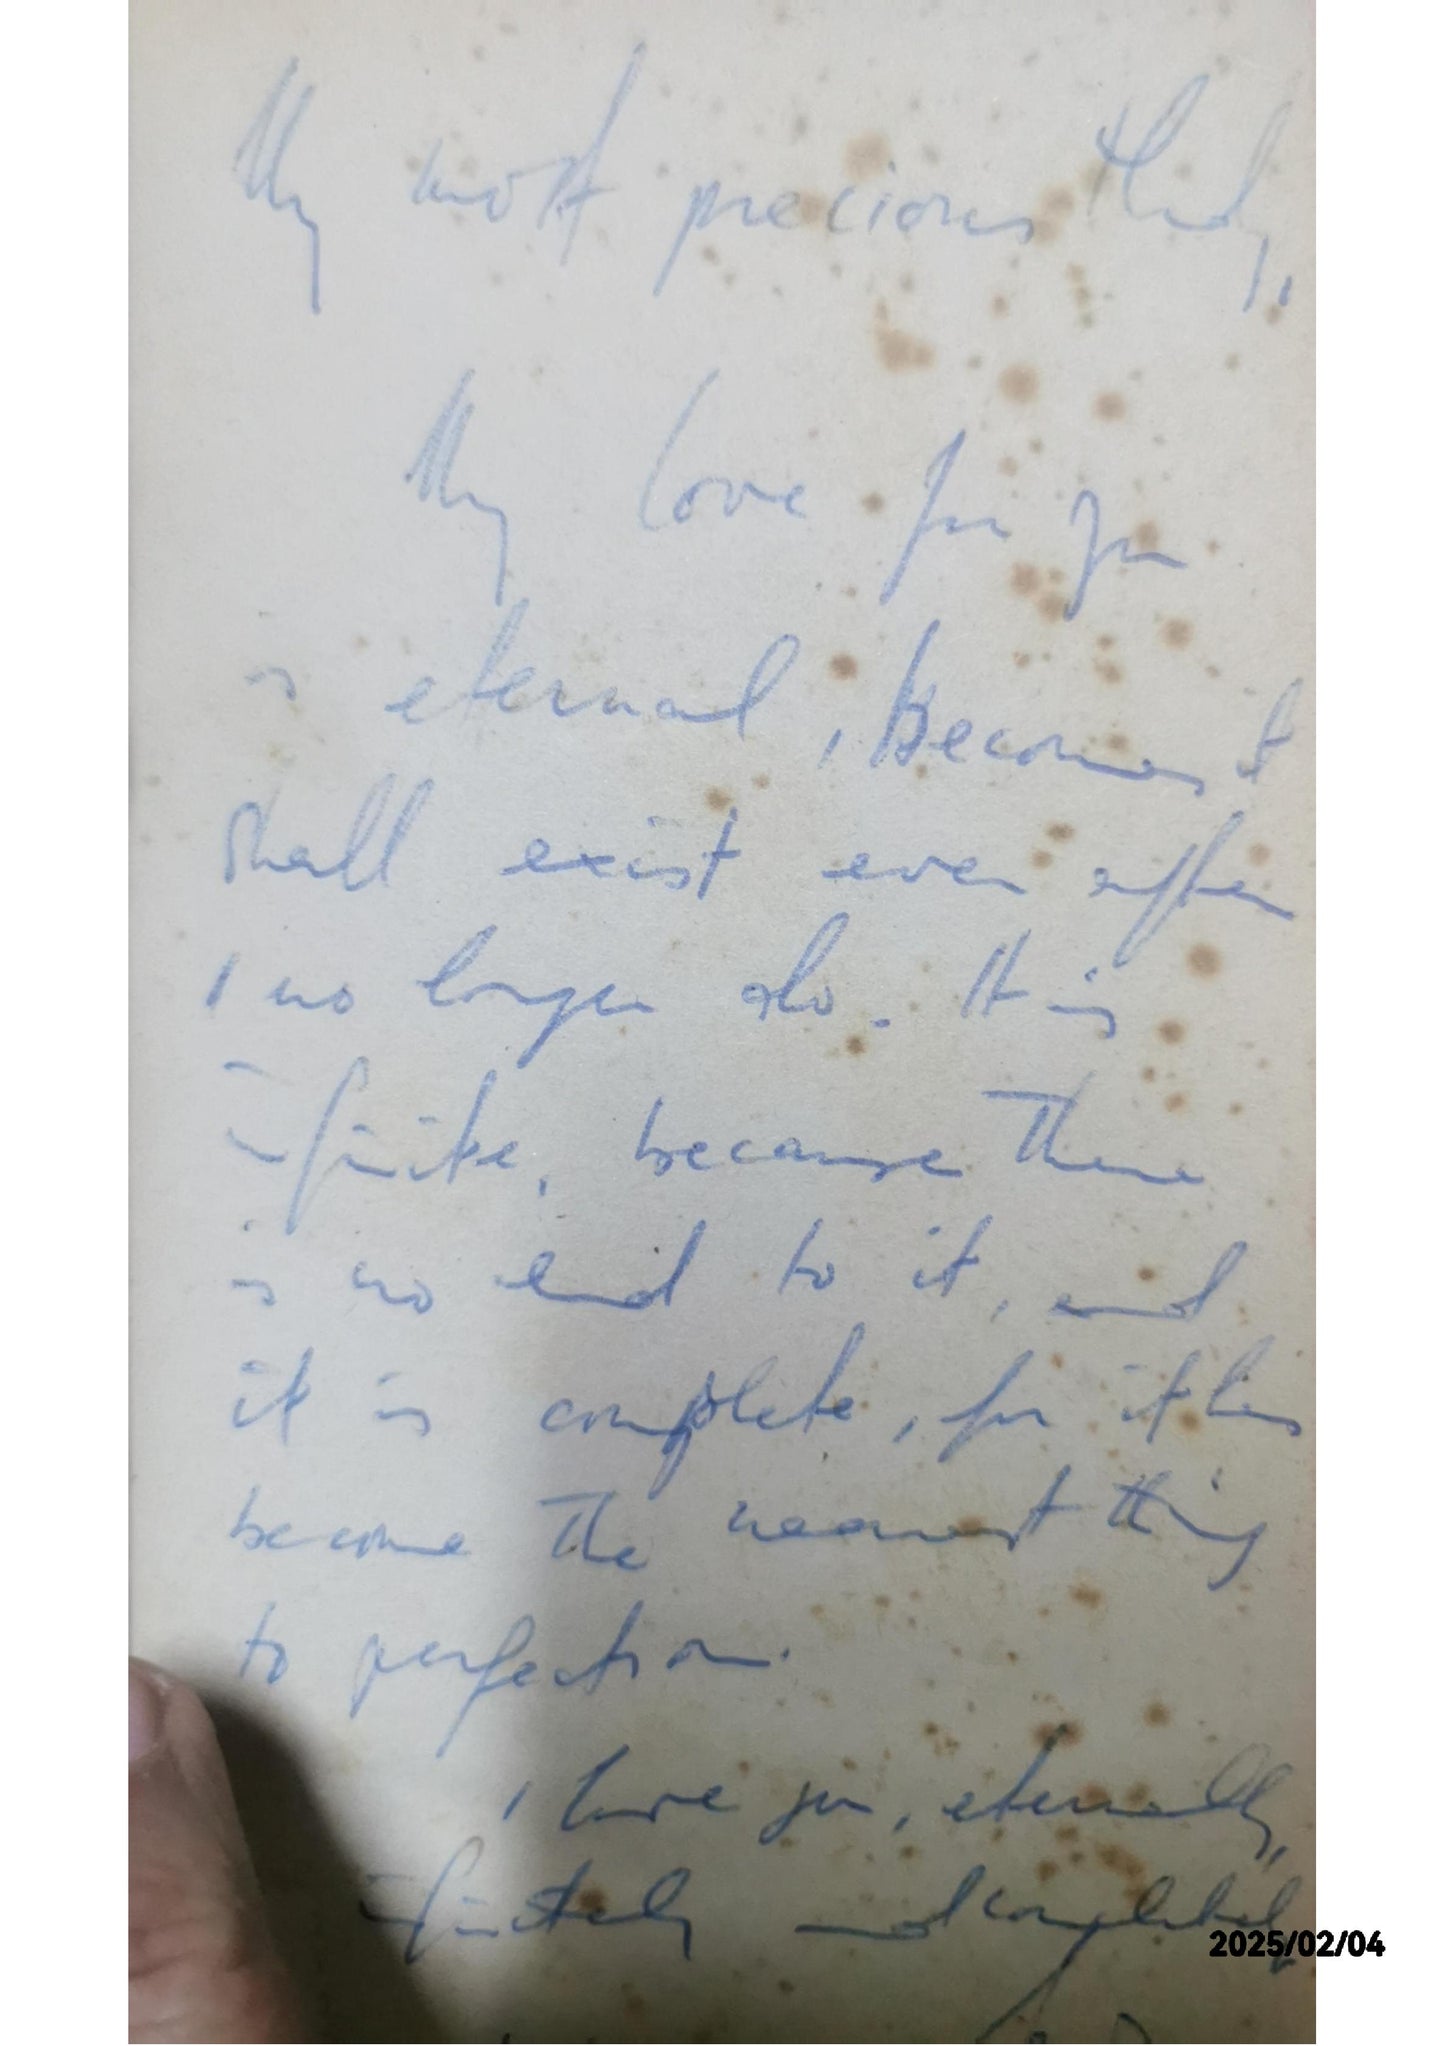 My most precious
My love for you
is eternal, because it
shall exist even after
I no longer do. It is
infinite, because there
is no end to it, and
it is complete, for it has
become the nearest thing
to perfection.
I love you, eternally,
infinitely and completely
2025/02/04